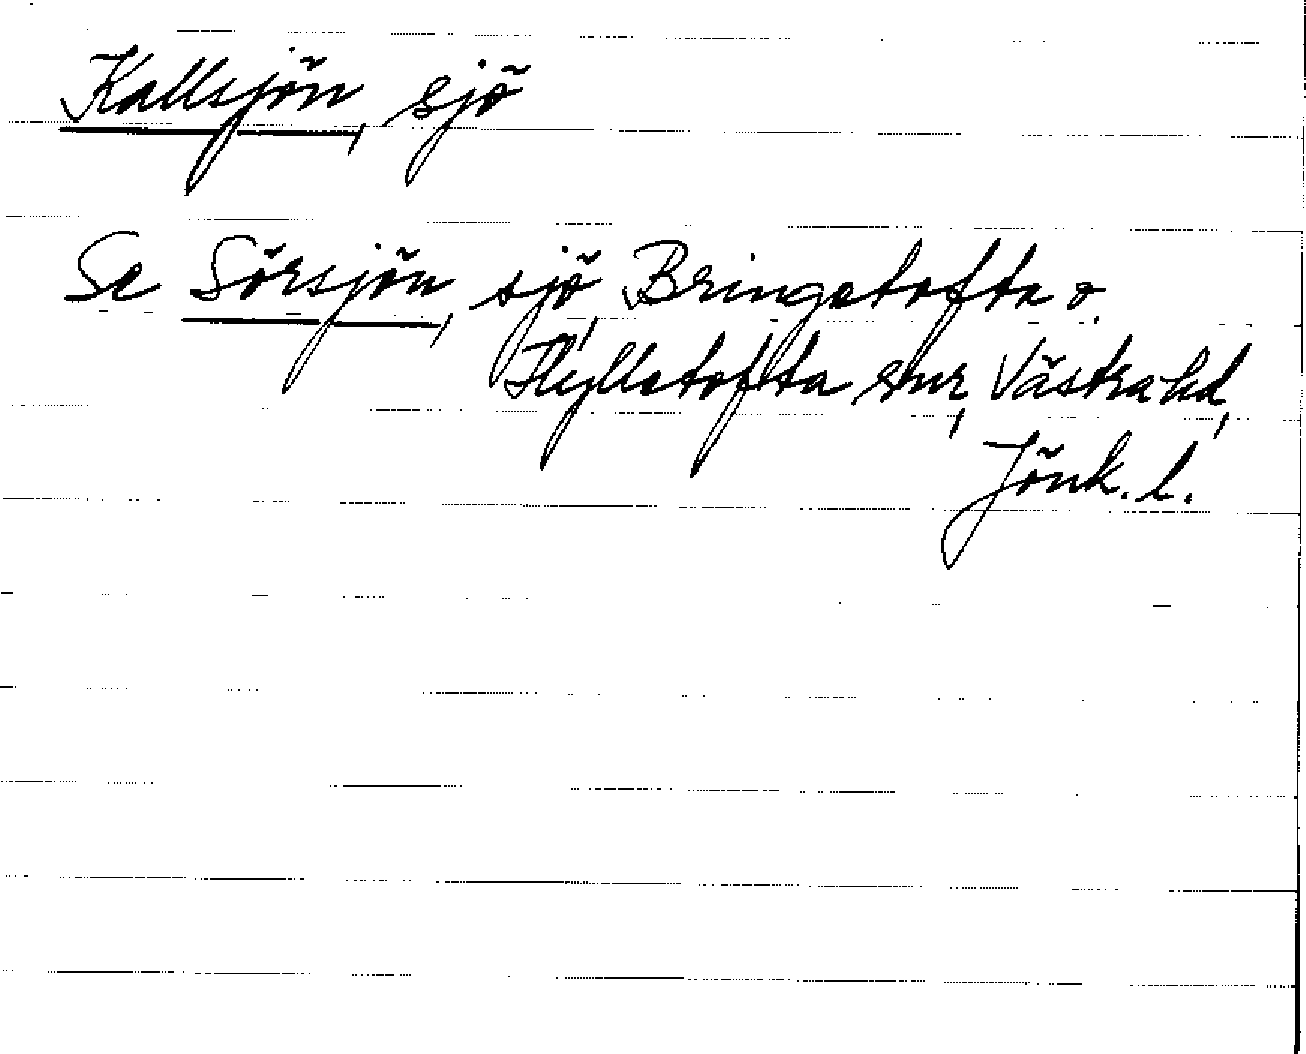 Kallsjön, sjö
Se Sörsjön, sjö, Bringetofta o.
Hylletofta snr, Västra hd,
Jönk. l.